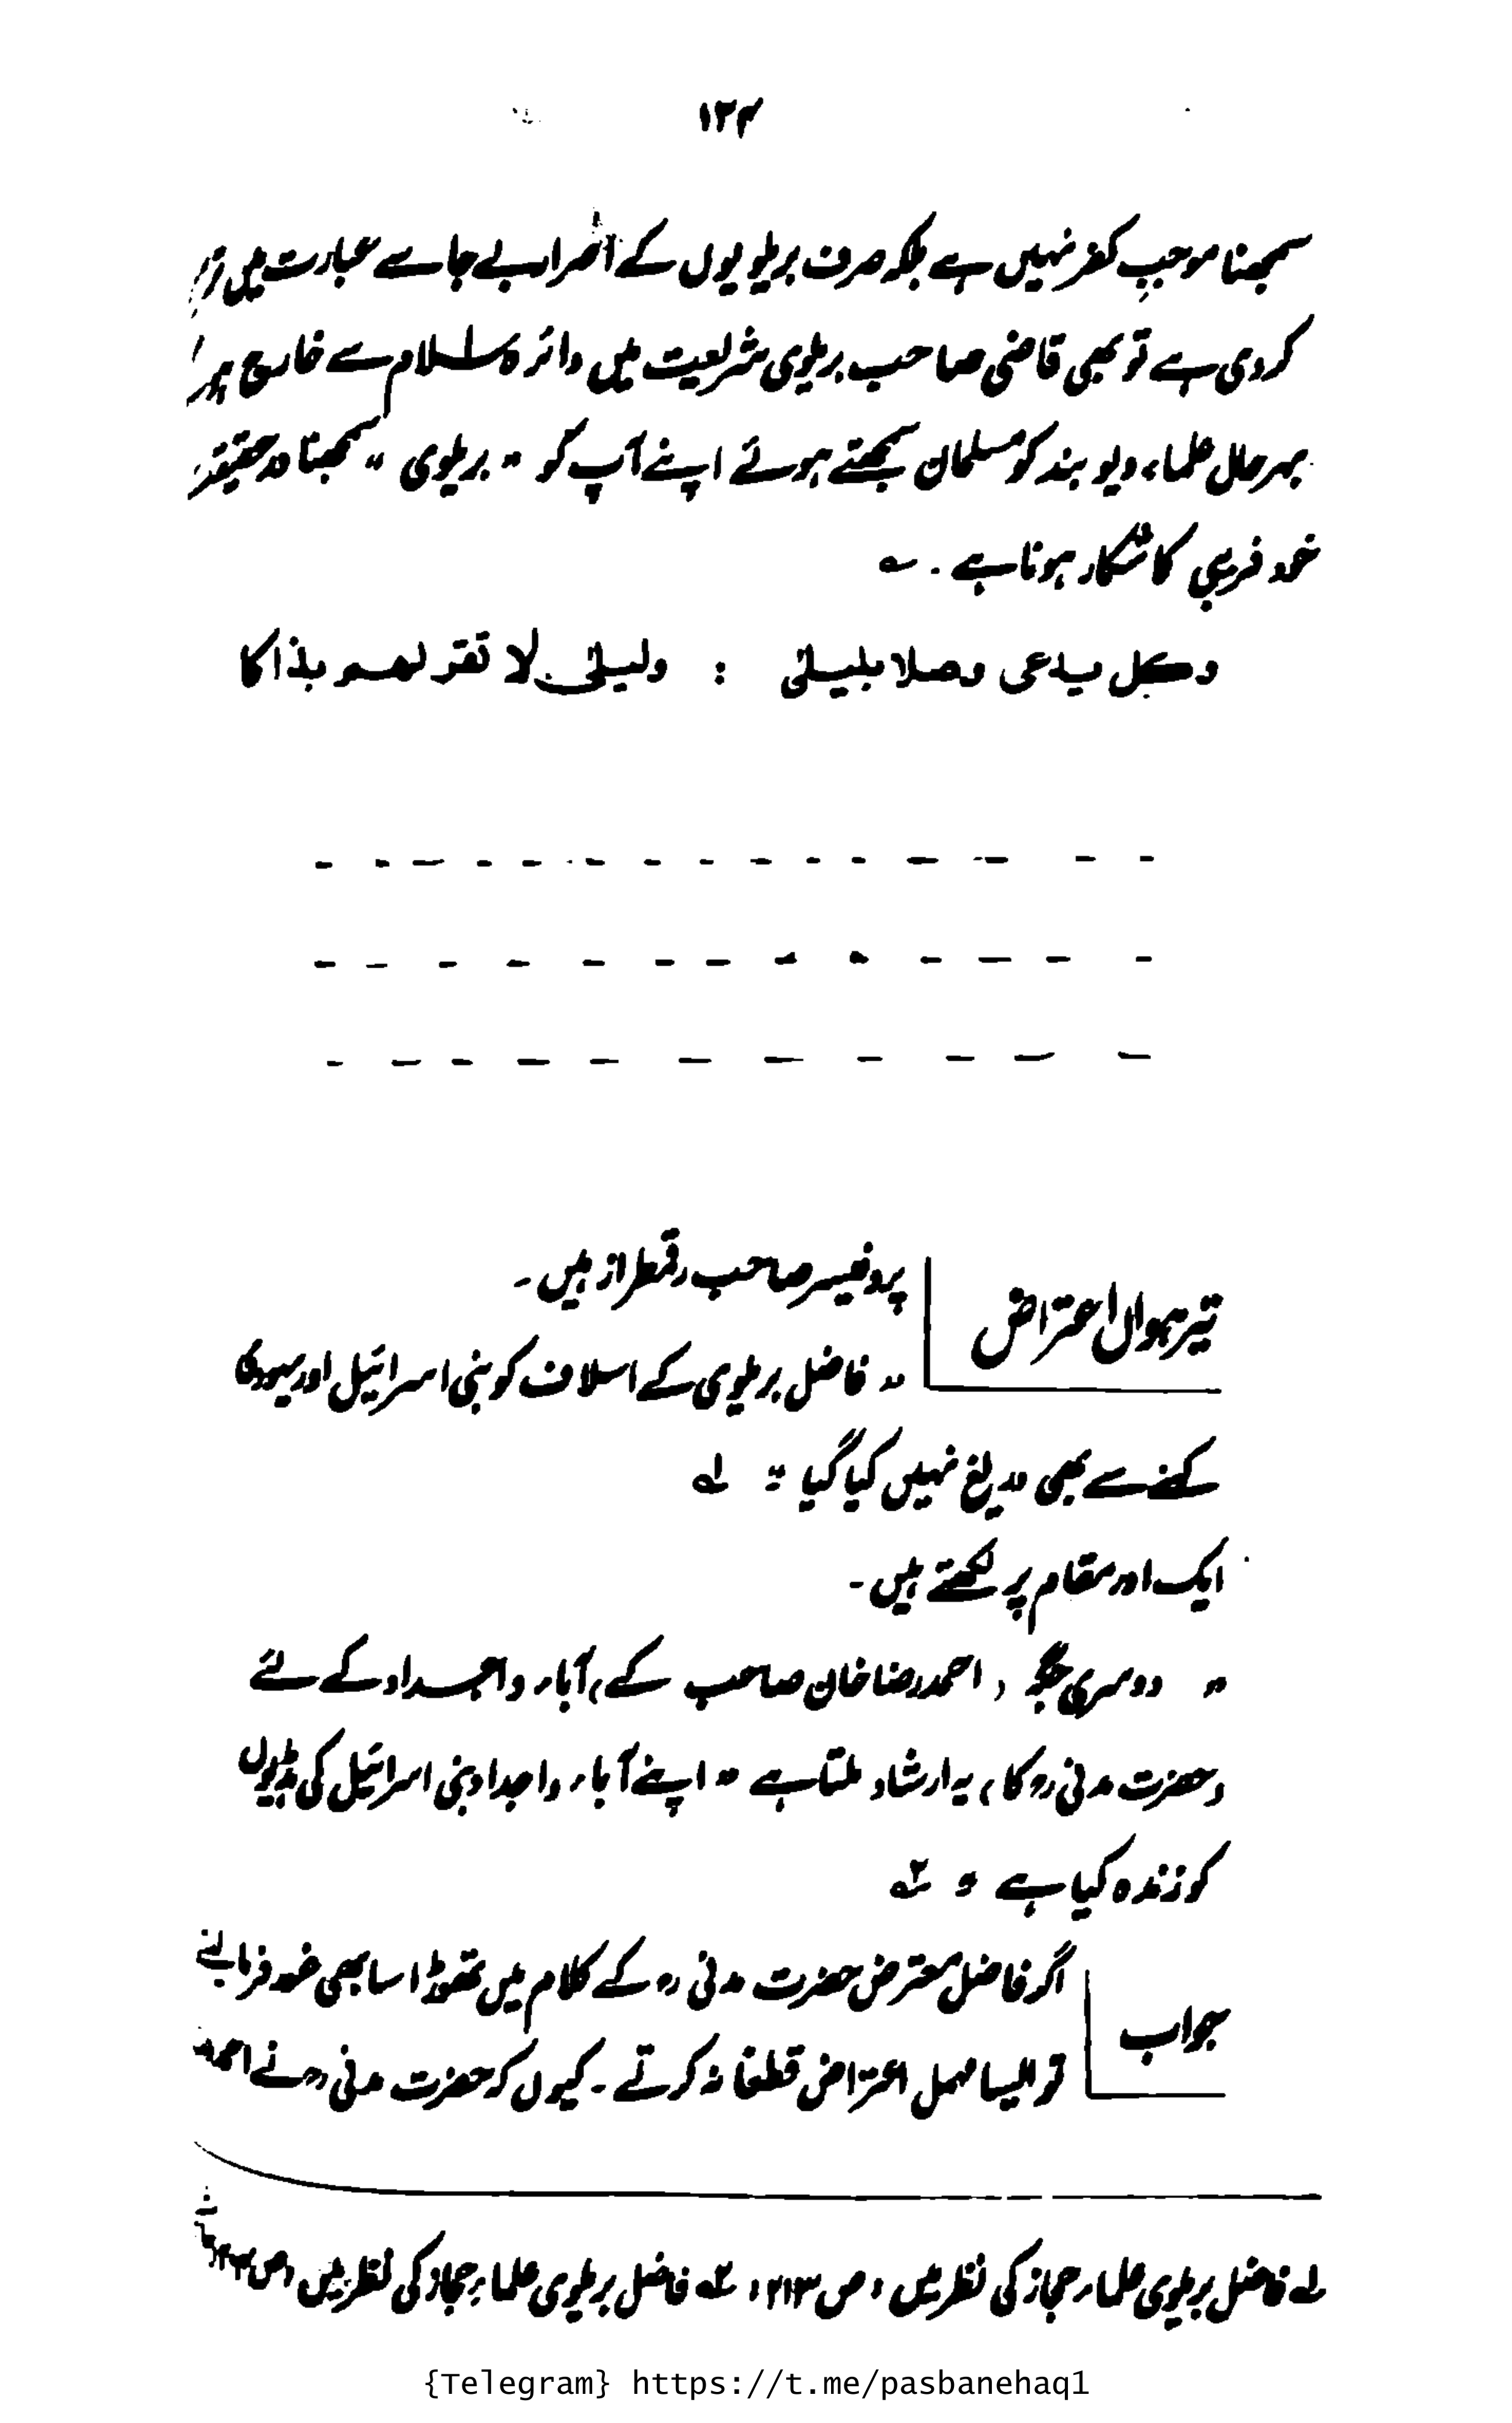 ۱۲۴
سمجھنا موجبِ کفر نہیں ہے بلکہ صرف بریلویوں کے اصرار بے جا سے عبارت میں
کر دی ہے تو بھی قاضی صاحب بریلوی شریعت میں دائرہ اسلام سے خارج
بہر حال علماء دیوبند کو مسلمان سمجھتے ہوئے اپنے آپ کو " بریلوی " سمجھنا درحقیقت
خود فریبی کا شکار ہونا ہے . ؎
وکل یدعی وصلا بلیلیٰ : ولیلیٰ لا تقر لھم بذاکا
تیرہواں اعتراض
پروفیسر صاحب رقمطراز ہیں ۔
" فاضل بریلوی کے اسلاف کو بنی اسرائیل اور یہودی
کہنے سے بھی دریغ نہیں کیا گیا " لہ
ایک اور مقام پر لکھتے ہیں ۔
" دوسری جگہ ( احمد رضا خان صاحب کے ) آباء و اجداد کے لئے
( حضرت مدنی رح کا ) یہ ارشاد ملتا ہے " اپنے آباء و اجداد بنی اسرائیل کی ہڈیوں
کو زندہ کیا ہے " ۲ہ
جواب
اگر فاضل معترض حضرت مدنی رح کے کلام میں تھوڑا سا بھی غور فرما لیتے
تو ایسا مہمل اعتراض قطعاً نہ کرتے ۔ کیوں کہ حضرت مدنی رح نے احمد
لہ فاضل بریلوی علماء حجاز کی نظر میں ( ص ۲۱۳ ) ۲ہ فاضل بریلوی علماء حجاز کی نظر میں ( ص
{Telegram} https://t.me/pasbanehaq1